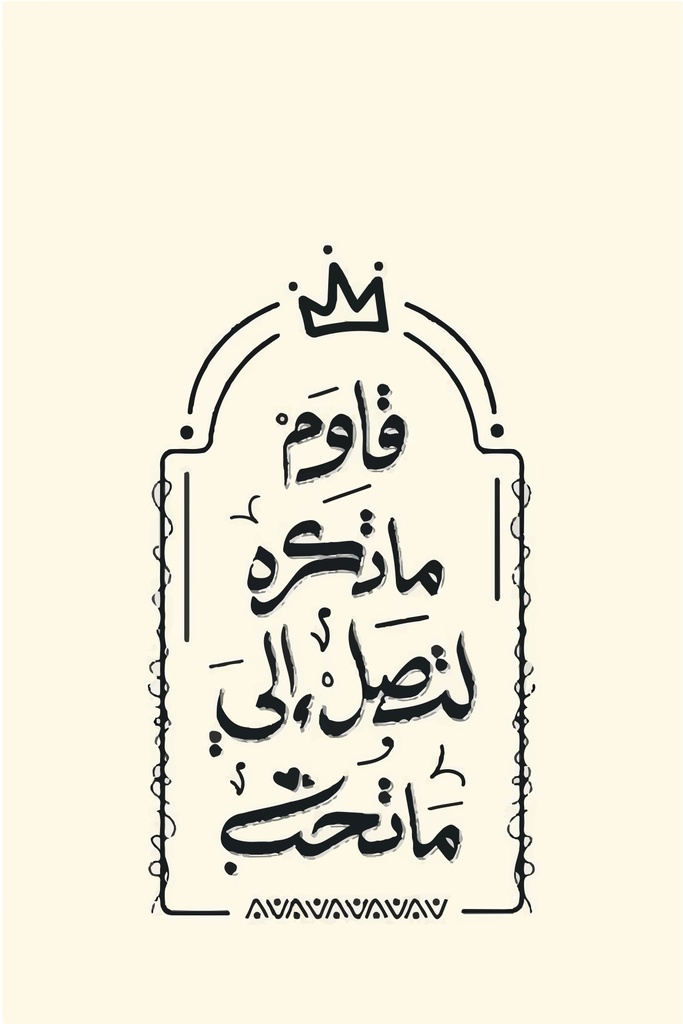 قاوم
ما تكره
لتصل إلي
ما تحب